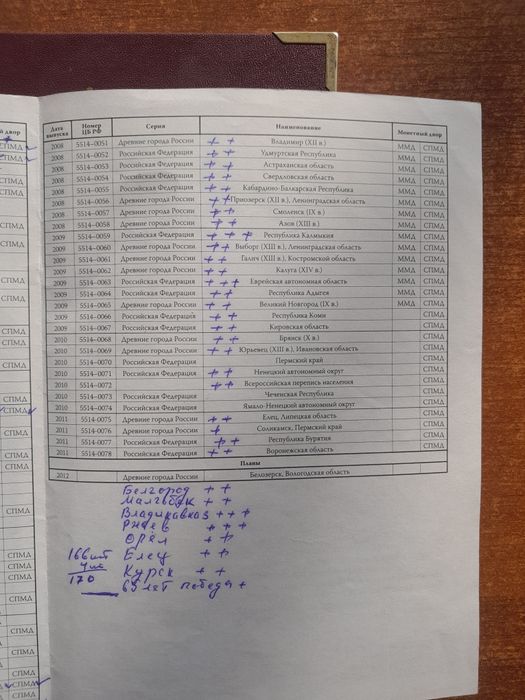 Дата выпуска Номер ЦБ РФ Серия Наименование Монетный двор
2008 5514–0051 Древние города России + + Владимир (XII в.) ММД СПМД
2008 5514–0052 Российская Федерация + + Удмуртская Республика ММД СПМД
2008 5514–0053 Российская Федерация + + Астраханская область ММД СПМД
2008 5514–0054 Российская Федерация + + Свердловская область ММД СПМД
2008 5514–0055 Российская Федерация + + Кабардино-Балкарская Республика ММД СПМД
2008 5514–0056 Древние города России + + Приозерск (XII в.), Ленинградская область ММД СПМД
2008 5514–0057 Древние города России + + Смоленск (IX в.) ММД СПМД
2008 5514–0058 Древние города России + + Азов (XIII в.) ММД СПМД
2009 5514–0059 Российская Федерация + + + Республика Калмыкия ММД СПМД
2009 5514–0060 Древние города России + + Выборг (XIII в.), Ленинградская область ММД СПМД
2009 5514–0061 Древние города России + + Галич (XIII в.), Костромской область ММД СПМД
2009 5514–0062 Древние города России + + Калуга (XIV в.) ММД СПМД
2009 5514–0063 Российская Федерация + + + Еврейская автономная область ММД СПМД
2009 5514–0064 Российская Федерация + + Республика Адыгея ММД СПМД
2009 5514–0065 Древние города России + + Великий Новгород (IX в.) ММД СПМД
2009 5514–0066 Российская Федерация + + Республика Коми СПМД
2009 5514–0067 Российская Федерация + + Кировская область СПМД
2010 5514–0068 Древние города России + + Брянск (X в.) СПМД
2010 5514–0069 Древние города России + + Юрьевец (XIII в.), Ивановская область СПМД
2010 5514–0070 Российская Федерация Пермский край СПМД
2010 5514–0071 Российская Федерация + + Ненецкий автономный округ СПМД
2010 5514–0072 + + Всероссийская перепись населения СПМД
2010 5514–0073 Российская Федерация Чеченская Республика СПМД
2010 5514–0074 Российская Федерация Ямало-Ненецкий автономный округ СПМД
2011 5514–0075 Древние города России + + Елец, Липецкая область СПМД
2011 5514–0076 Древние города России + Соликамск, Пермский край СПМД
2011 5514–0077 Российская Федерация + + Республика Бурятия СПМД
2011 5514–0078 Российская Федерация + + Воронежская область СПМД
Планы
2012 Древние города России Белозерск, Вологодская область
Белгород + +
Малгобек + +
Владикавказ + + +
Ржев + + +
Орёл + +
166 шт Елец + +
4 шт Курск + +
170 65 лет победа +